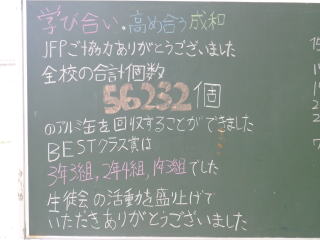 学び合い・高め合う成和
JFPご協力ありがとうございました
全校の合計個数
56232個
のアルミ缶を回収することができました
BESTクラス賞は
3年3組,2年4組,1年3組でした
生徒会の活動を盛り上げて
いただきありがとうございました